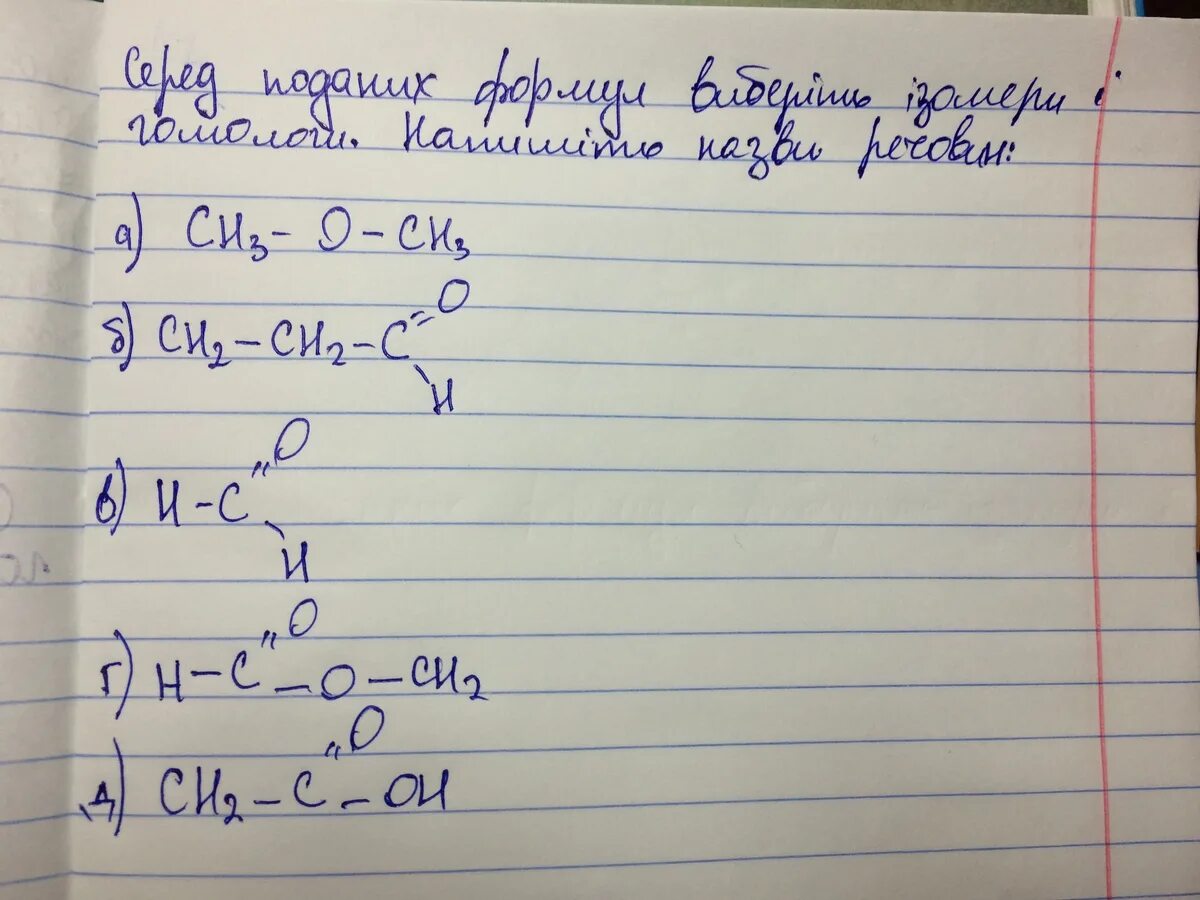 Серед поданих формул виберіть ізомери і
гомологи. Напишіть назви речовин:
а) CH₃ - O - CH₃
O
б) CH₂ - CH₂ - C =
H
O
в) H - C "
H
O
г) H - C " - O - CH₂
O
д) CH₂ - C " - OH